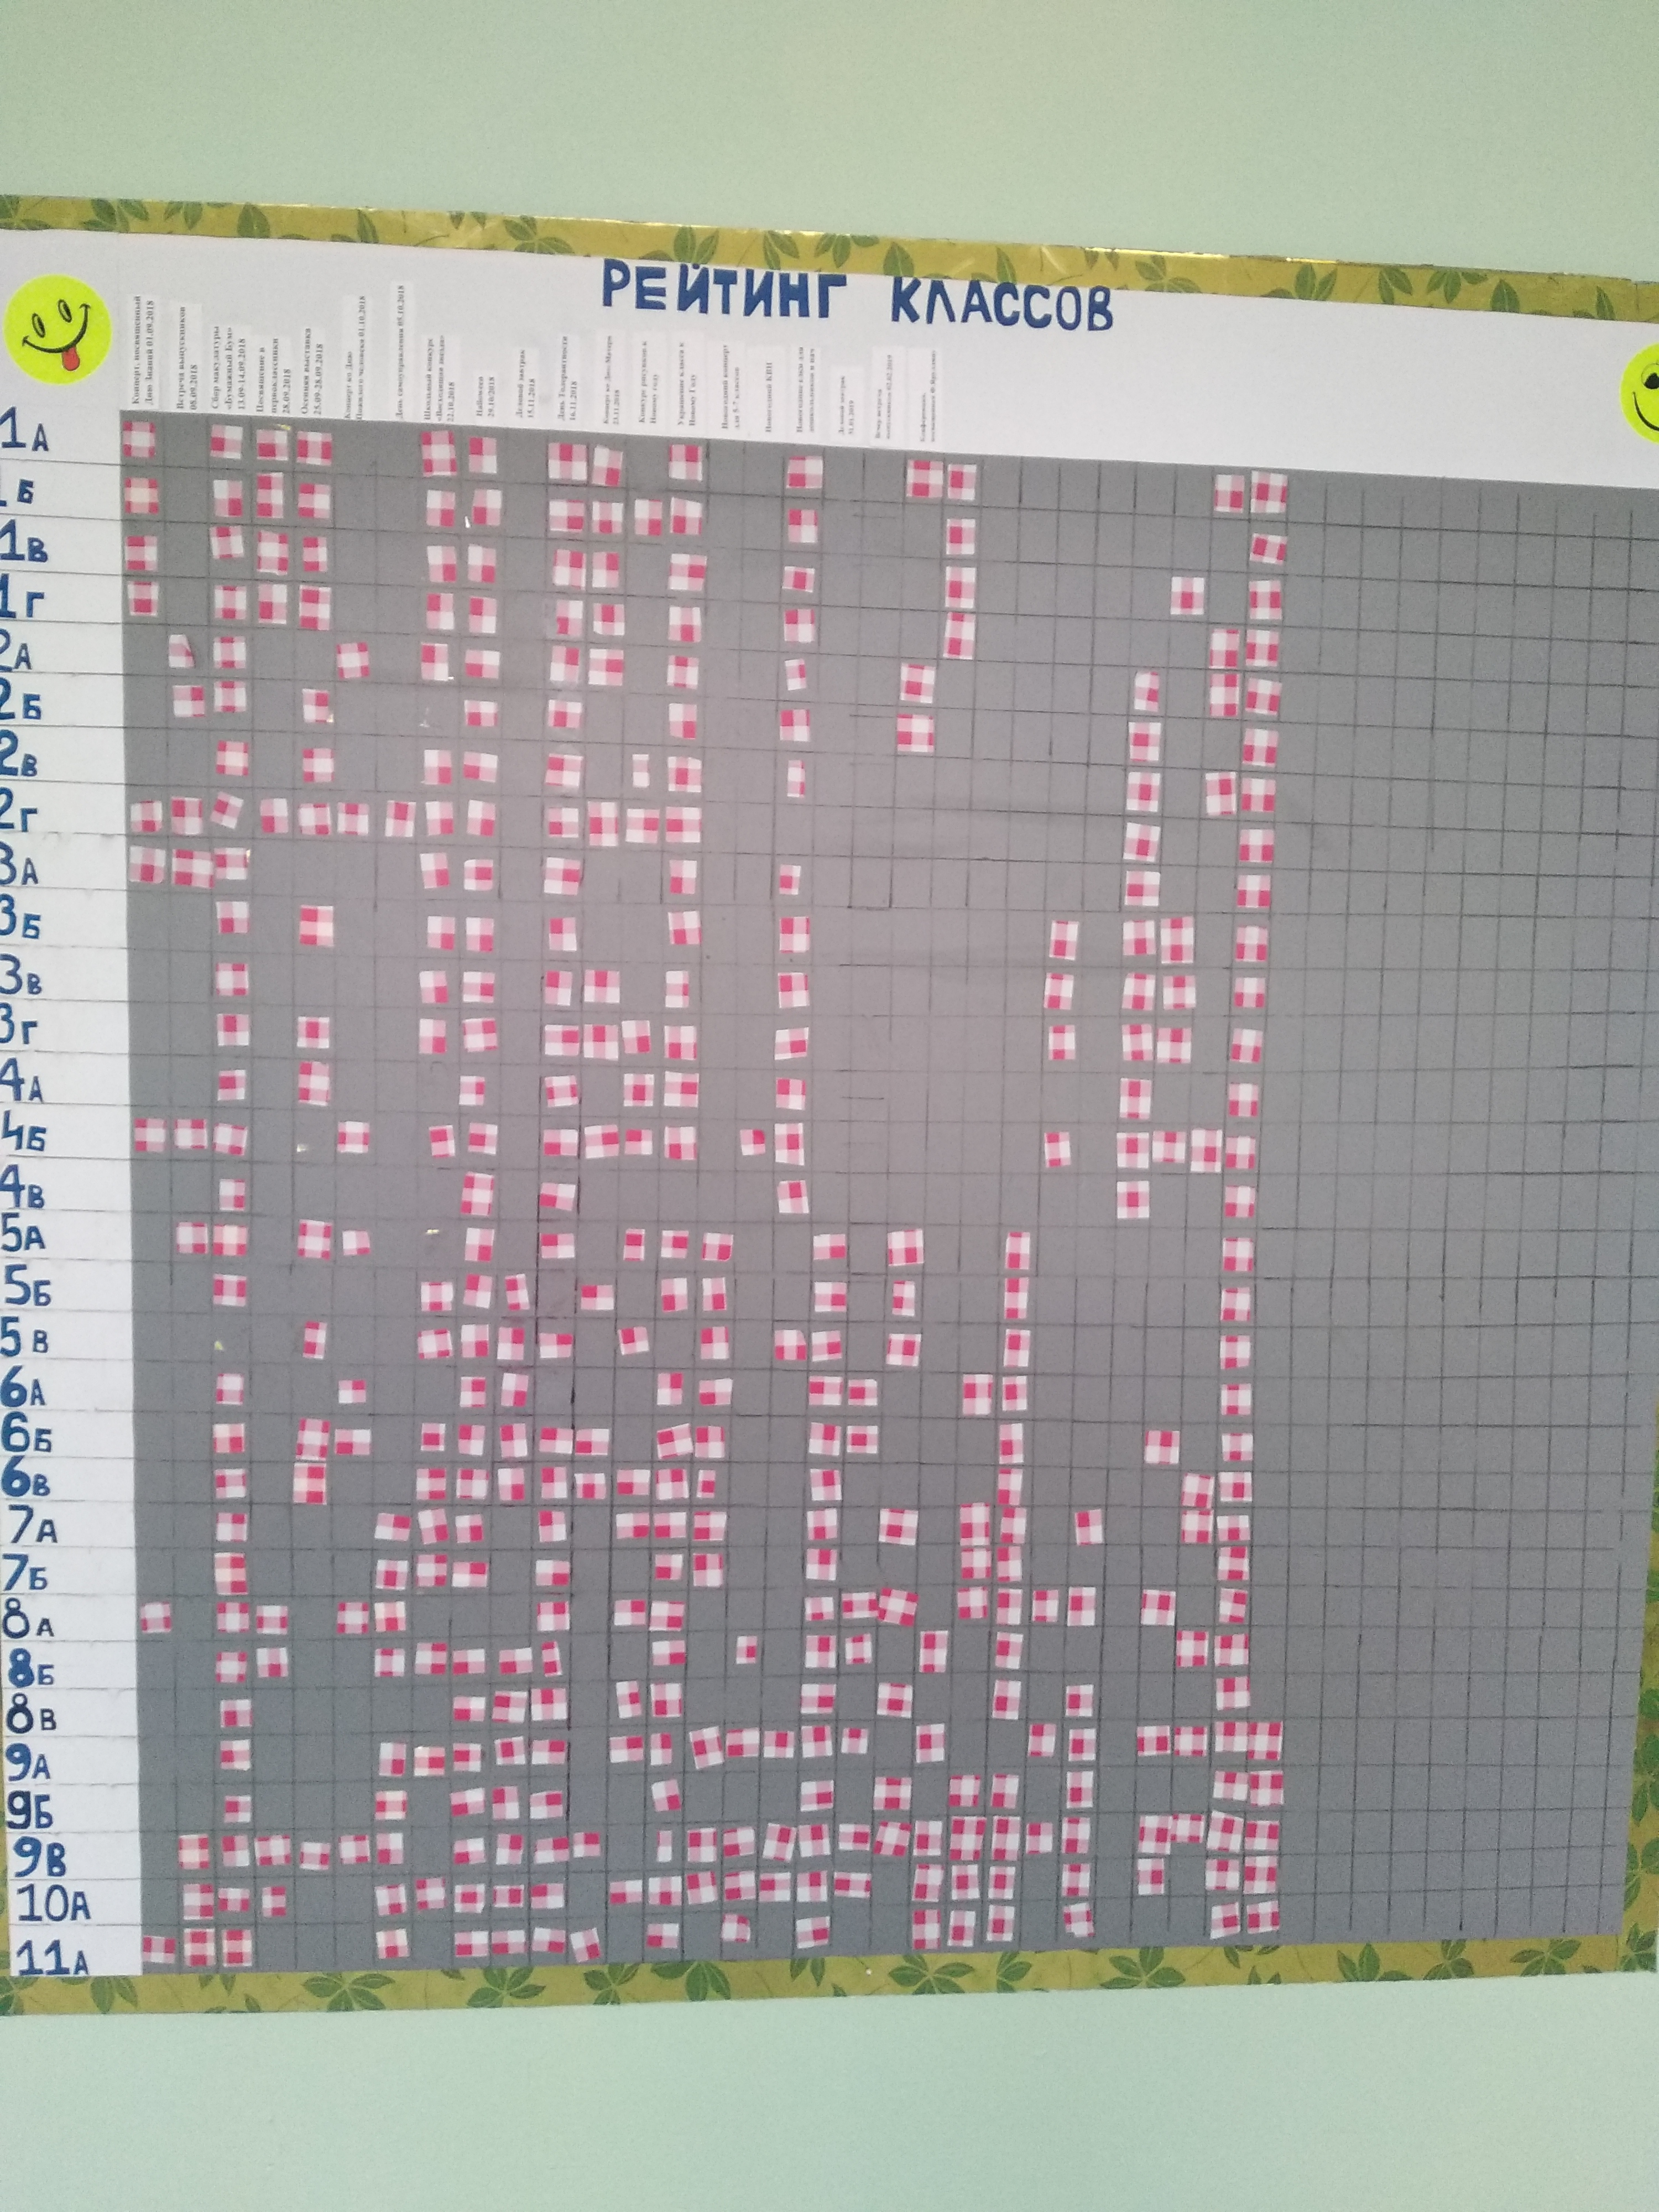 РЕЙТИНГ КЛАССОВ
Концерт, посвященный
Дню Знаний 01.09.2018
Встреча выпускников
08.09.2018
Сбор макулатуры
«Бумажный Бум»
13.09-14.09.2018
Посвящение в
первоклассники
28.09.2018
Осенняя выставка
25.09-28.09.2018
Концерт ко Дню
Пожилого человека 01.10.2018
День самоуправления 05.10.2018
Школьный конкурс
22.10.2018
29.10.2018
Деловой завтрак
15.11.2018
День Толерантности
16.11.2018
Концерт ко Дню Матери
23.11.2018
Конкурс рисунков к
Новому году
Украшение класса к
Новому Году
Новогодний концерт
для 5-7 классов
Новогодний КВН
Деловой завтрак
1А
1Б
1В
1Г
2А
2Б
2В
2Г
3А
3Б
3В
3Г
4А
4Б
4В
5А
5Б
5В
6А
6Б
6В
7А
7Б
8А
8Б
8В
9А
9Б
9В
10А
11А